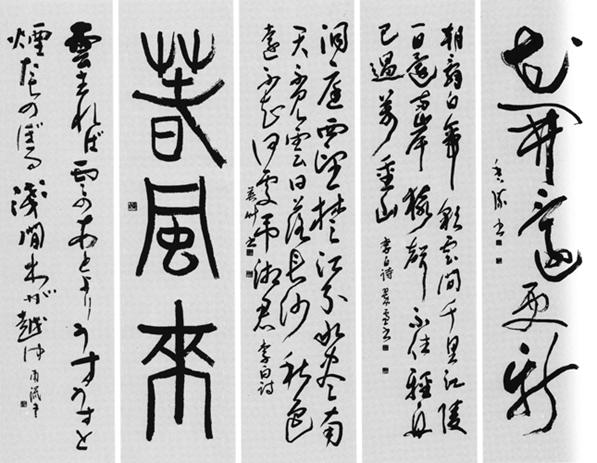 花開更新
朝辭白帝彩雲間千里江陵
一日還兩岸猿聲不住輕舟
已過萬重山 李白詩
洞庭西望楚江分水盡南
天不見雲日落長沙秋色
遠不知何處弔湘君 李白詩
春風來
雲去れば雲のあとよりうすうすと
煙たちのぼる淺間わが越ゆ